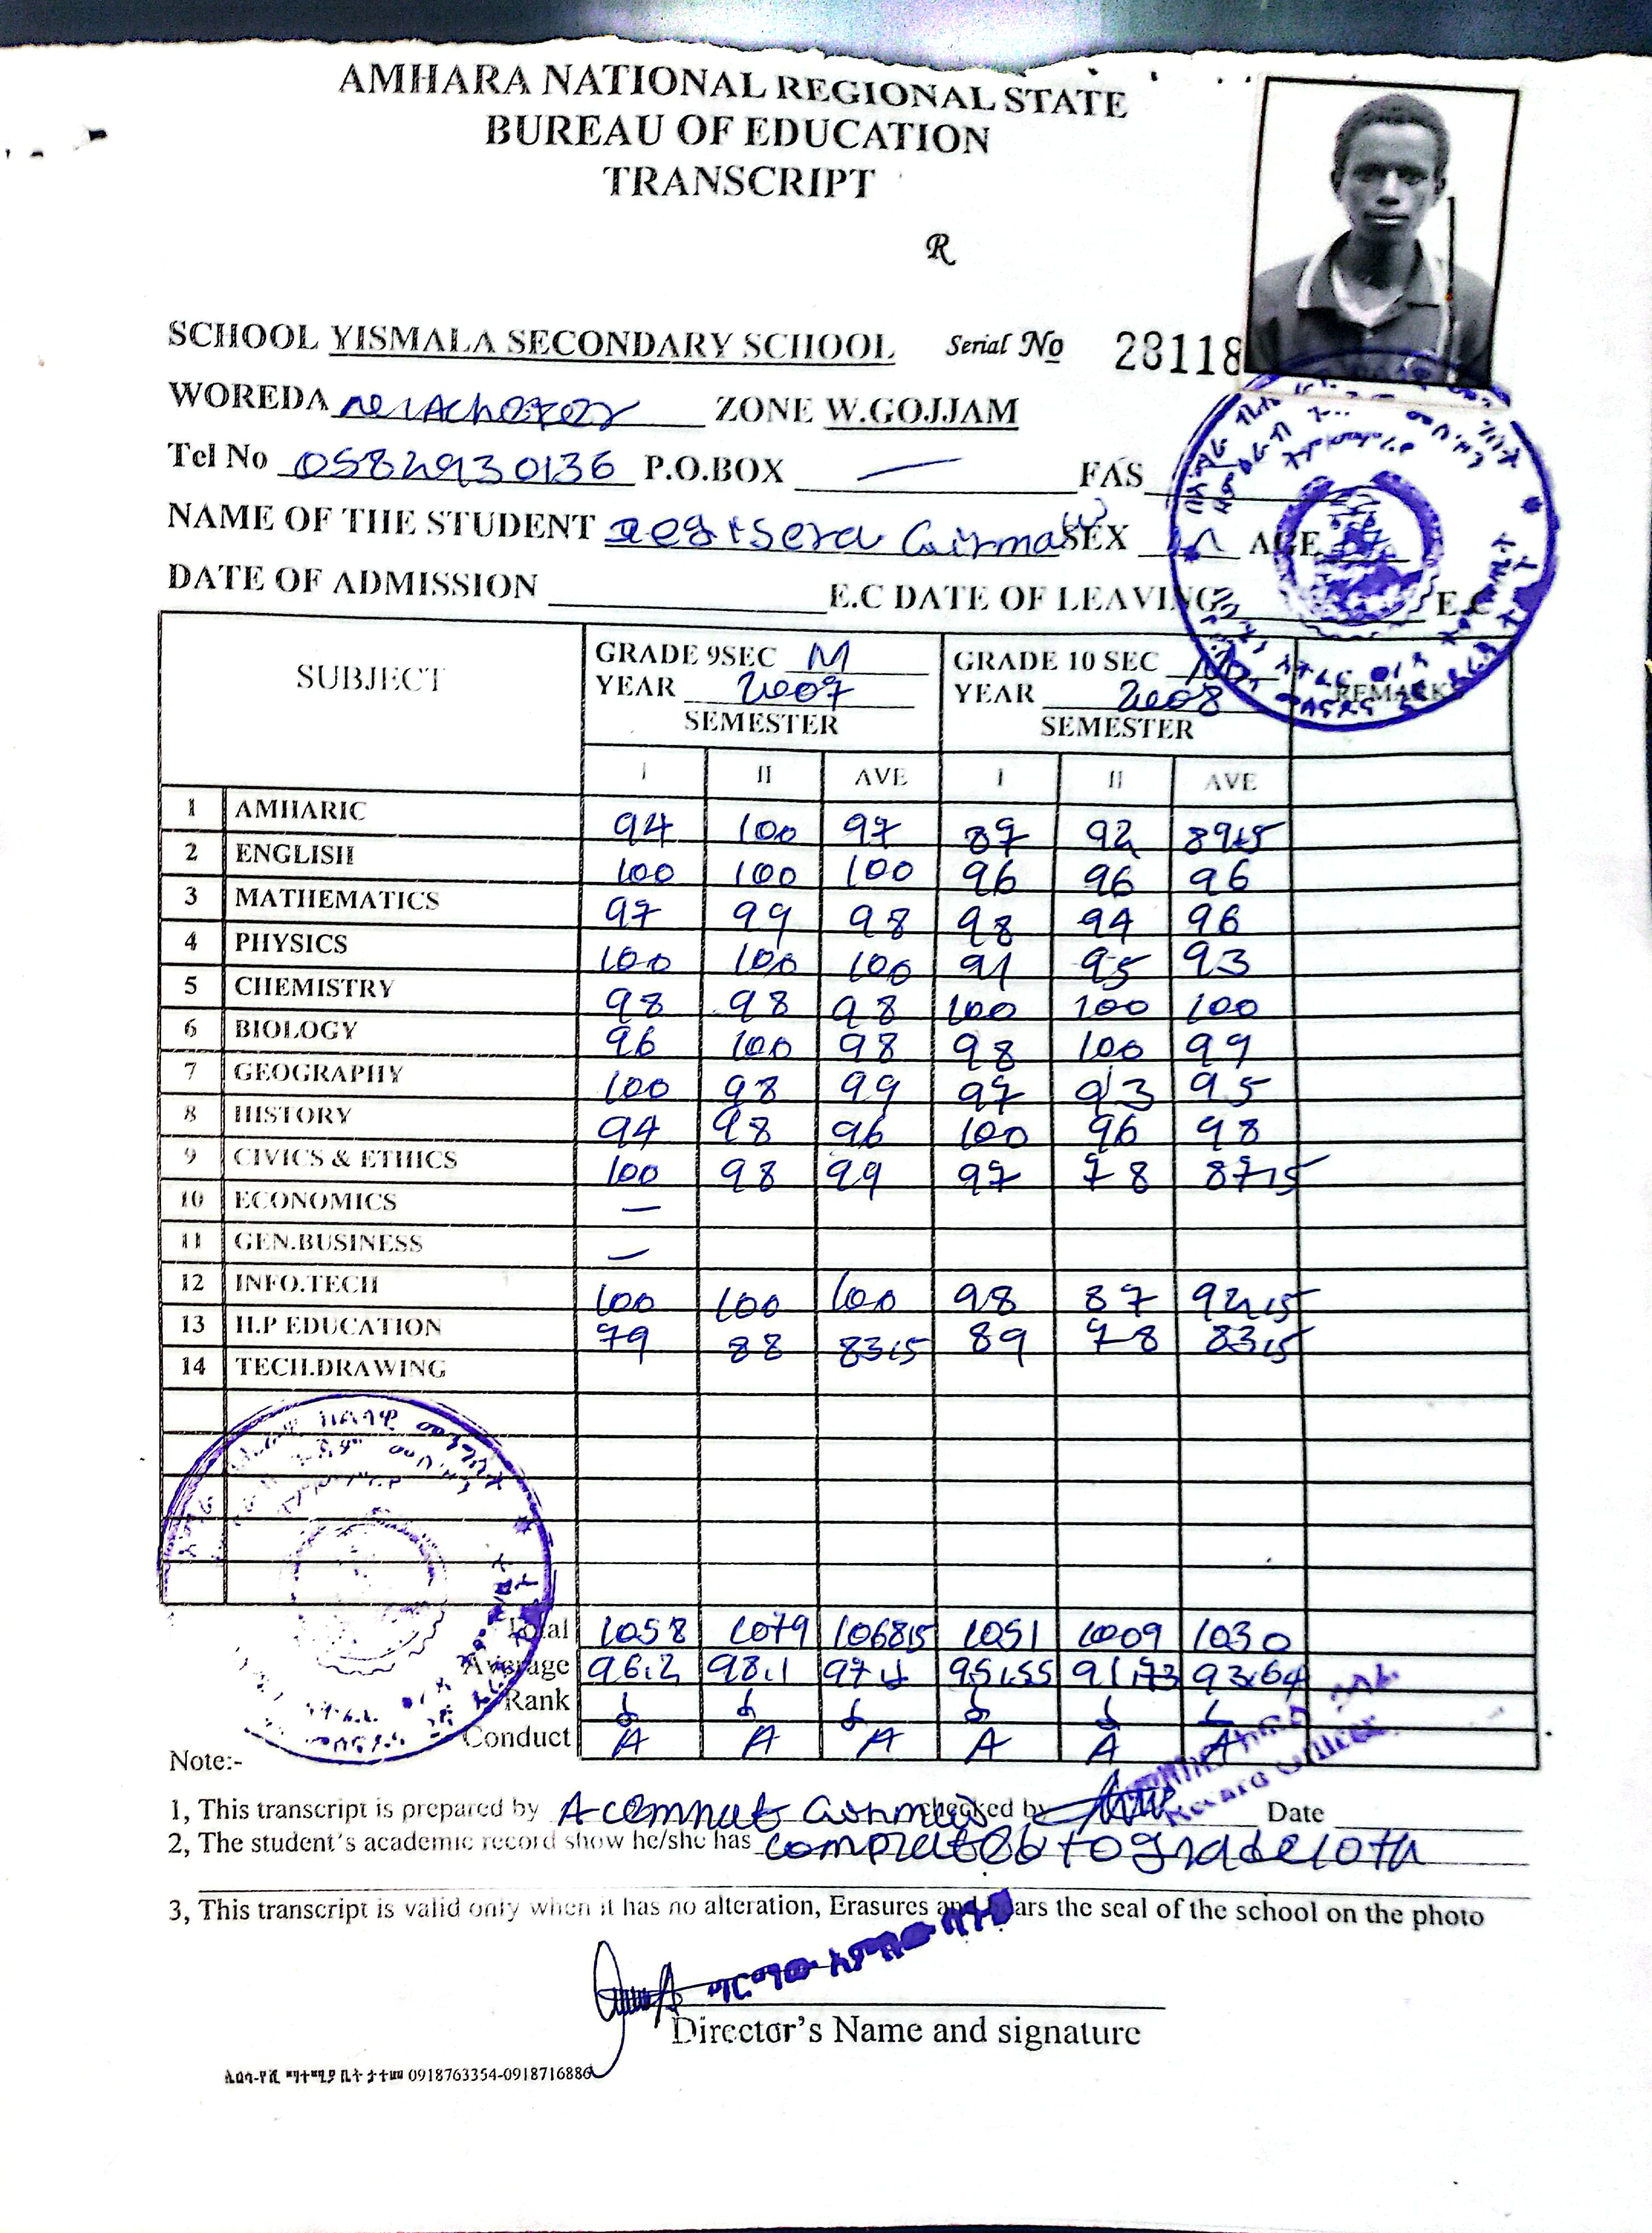 AMHARA NATIONAL REGIONAL STATE
BUREAU OF EDUCATION
TRANSCRIPT
R
SCHOOL YISMALA SECONDARY SCHOOL Serial No 28118
WOREDA ZONE W.GOJJAM
Tel No 0582930136 P.O.BOX — FAS
NAME OF THE STUDENT Girmaw SEX AGE
DATE OF ADMISSION E.C DATE OF LEAVING E.C
SUBJECT GRADE 9SEC M GRADE 10 SEC REMARKS
YEAR 2007 YEAR 2008
SEMESTER SEMESTER
I II AVE I II AVE
1 AMHARIC 94 100 97 87 92 89.5
2 ENGLISH 100 100 100 96 96 96
3 MATHEMATICS 97 99 98 98 94 96
4 PHYSICS 100 100 100 91 95 93
5 CHEMISTRY 98 98 98 100 100 100
6 BIOLOGY 96 100 98 98 100 99
7 GEOGRAPHY 100 98 99 97 93 95
8 HISTORY 94 98 96 100 96 98
9 CIVICS & ETHICS 100 98 99 97 78 87.5
10 ECONOMICS —
11 GEN.BUSINESS —
12 INFO.TECH 100 100 100 98 87 92.5
13 H.P EDUCATION 79 88 83.5 89 78 83.5
14 TECH.DRAWING
Total 1058 1079 1068.5 1051 1009 1030
Average 96.2 98.1 97.1 95.55 91.73 93.64
Rank
Conduct A A A A A A
Record Officer
Note:-
1, This transcript is prepared by checked by Date
2, The student's academic record show he/she has completed to grade 10th
3, This transcript is valid only when it has no alteration, Erasures and bears the seal of the school on the photo
Director's Name and signature
0918763354-0918716886